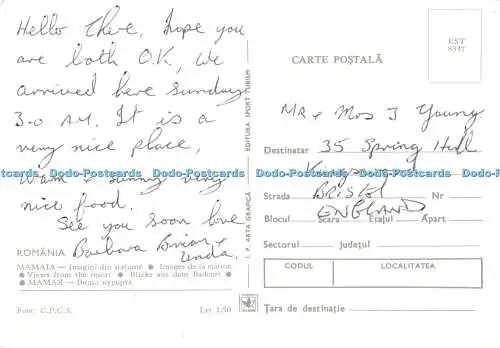 Hello There, hope you
are both O.K, We
arrived here Sunday
3-0 AM. It is a
very nice place,
warm & sunny very
nice food.
See you soon love
Barbara Brian &
Linda.
ROMÂNIA
MAMAIA — Imagini din stațiune ● Images de la station
● Views from the resort ● Bilder aus dem Badeort ●
● МАМАЯ — Виды курорта
Foto: C.P.C.S.
Lei 1,50
I. P. ARTA GRAFICĂ
EDITURA SPORT TURISM
CARTE POȘTALĂ
EST
8337
MR & Mrs J Young
Destinatar 35 Spring Hill
Strada BRISTOL Nr
ENGLAND
Blocul Scara Etajul Apart
Sectorul Județul
CODUL LOCALITATEA
Țara de destinație
Dodo-Postcards Dodo-Postcards Dodo-Postcards Dodo-Postcards Dodo-Postcards